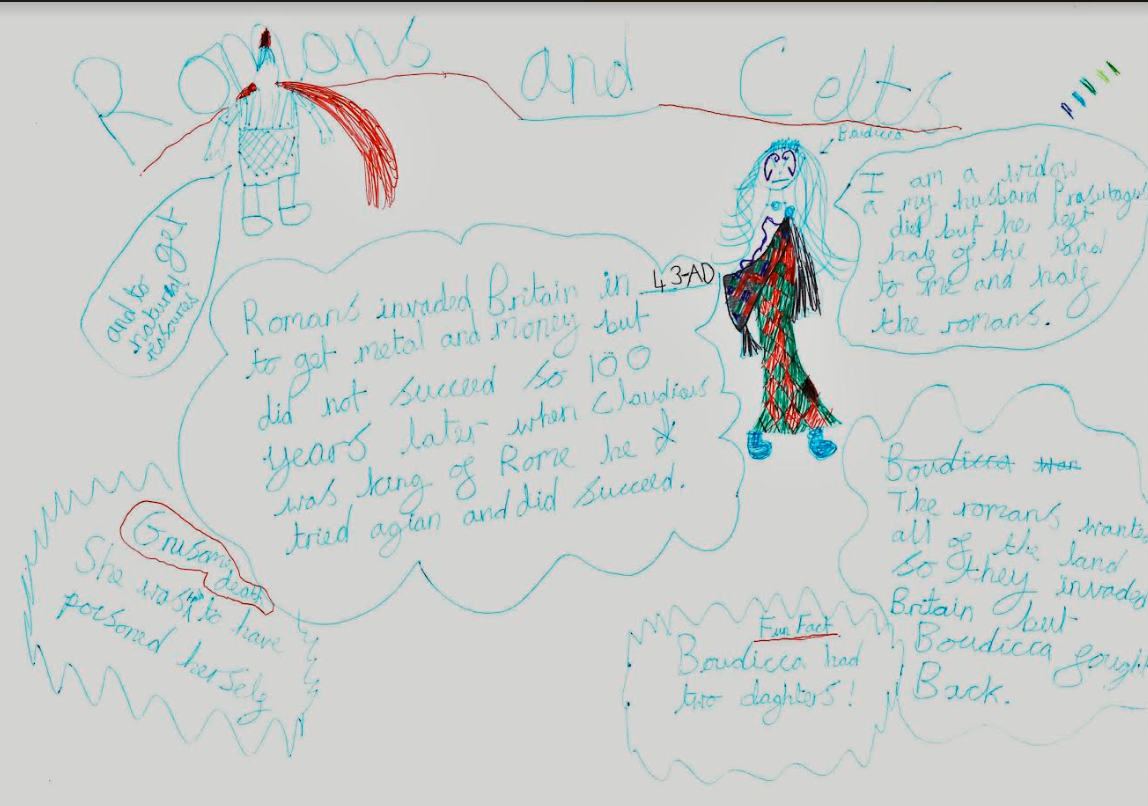 Romans and Celts
Boudicca
I am a widow
a my husband Prasutagus
died but he left
half of the land
to me and half
the romans.
and to
get
natural
resources
Romans invaded Britain in 43-AD
to get metal and money but
did not succeed so 100
years later when Claudious
was king of Rome he
tried agian and did succeed.
Boudicca
The romans wanted
all of the land
so they invaded
Britain but
Boudicca fough
Back.
Grusome
death
She was to have
poisoned herself
Fun Fact
Boudicca had
two daghters!